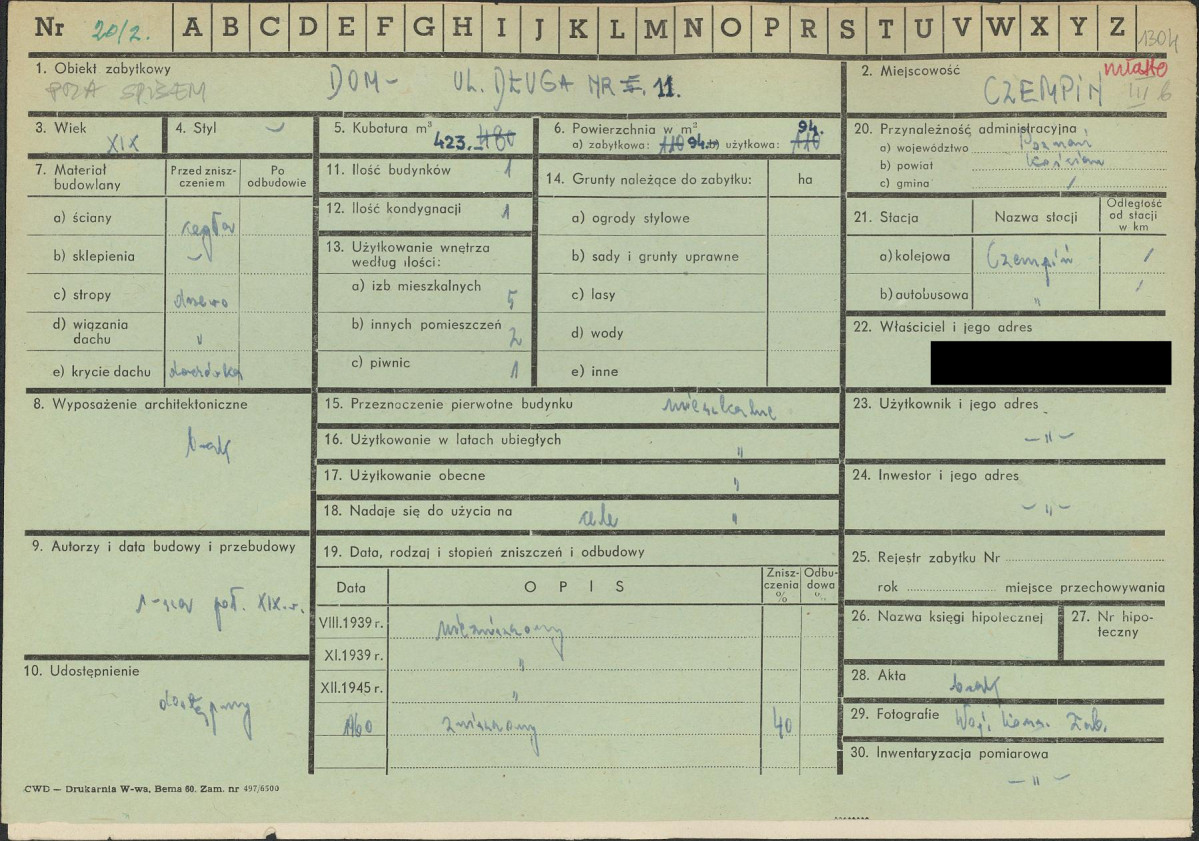 Nr 20/2. A B C D E F G H I J K L M N O P R S T U V W X Y Z 1304
1. Obiekt zabytkowy DOM - UL. DŁUGA NR 11.
POZA SPISEM
2. Miejscowość CZEMPIŃ miasto III b
3. Wiek XIX
4. Styl -
5. Kubatura m³ 423. 480
6. Powierzchnia w m² 94.
a) zabytkowa: 110 94. b) użytkowa: 110
7. Materiał budowlany
Przed zniszczeniem
Po odbudowie
a) ściany cegła
b) sklepienia -
c) stropy drzewo
d) wiązania dachu "
e) krycie dachu dachówka
8. Wyposażenie architektoniczne
brak
9. Autorzy i data budowy i przebudowy
1-sza poł. XIX w.
10. Udostępnienie
dostępny
11. Ilość budynków 1
12. Ilość kondygnacji 1
13. Użytkowanie wnętrza według ilości:
a) izb mieszkalnych 5
b) innych pomieszczeń 2
c) piwnic 1
14. Grunty należące do zabytku: ha
a) ogrody stylowe
b) sady i grunty uprawne
c) lasy
d) wody
e) inne
15. Przeznaczenie pierwotne budynku mieszkalne
16. Użytkowanie w latach ubiegłych "
17. Użytkowanie obecne "
18. Nadaje się do użycia na cele "
19. Data, rodzaj i stopień zniszczeń i odbudowy
Data OPIS Zniszczenia % Odbudowa %
VIII.1939 r. niezniszczony
XI.1939 r. "
XII.1945 r. "
1960 zniszczony 40
20. Przynależność administracyjna
a) województwo Poznań
b) powiat Kościan
c) gmina /
21. Stacja Nazwa stacji Odległość od stacji w km
a) kolejowa Czempiń /
b) autobusowa " /
22. Właściciel i jego adres
23. Użytkownik i jego adres
- " -
24. Inwestor i jego adres
- " -
25. Rejestr zabytku Nr
rok miejsce przechowywania
26. Nazwa księgi hipotecznej
27. Nr hipoteczny
28. Akta brak
29. Fotografie Woj. Kons. Zab.
30. Inwentaryzacja pomiarowa
- " -
CWD — Drukarnia W-wa, Bema 60. Zam. nr 497/6500